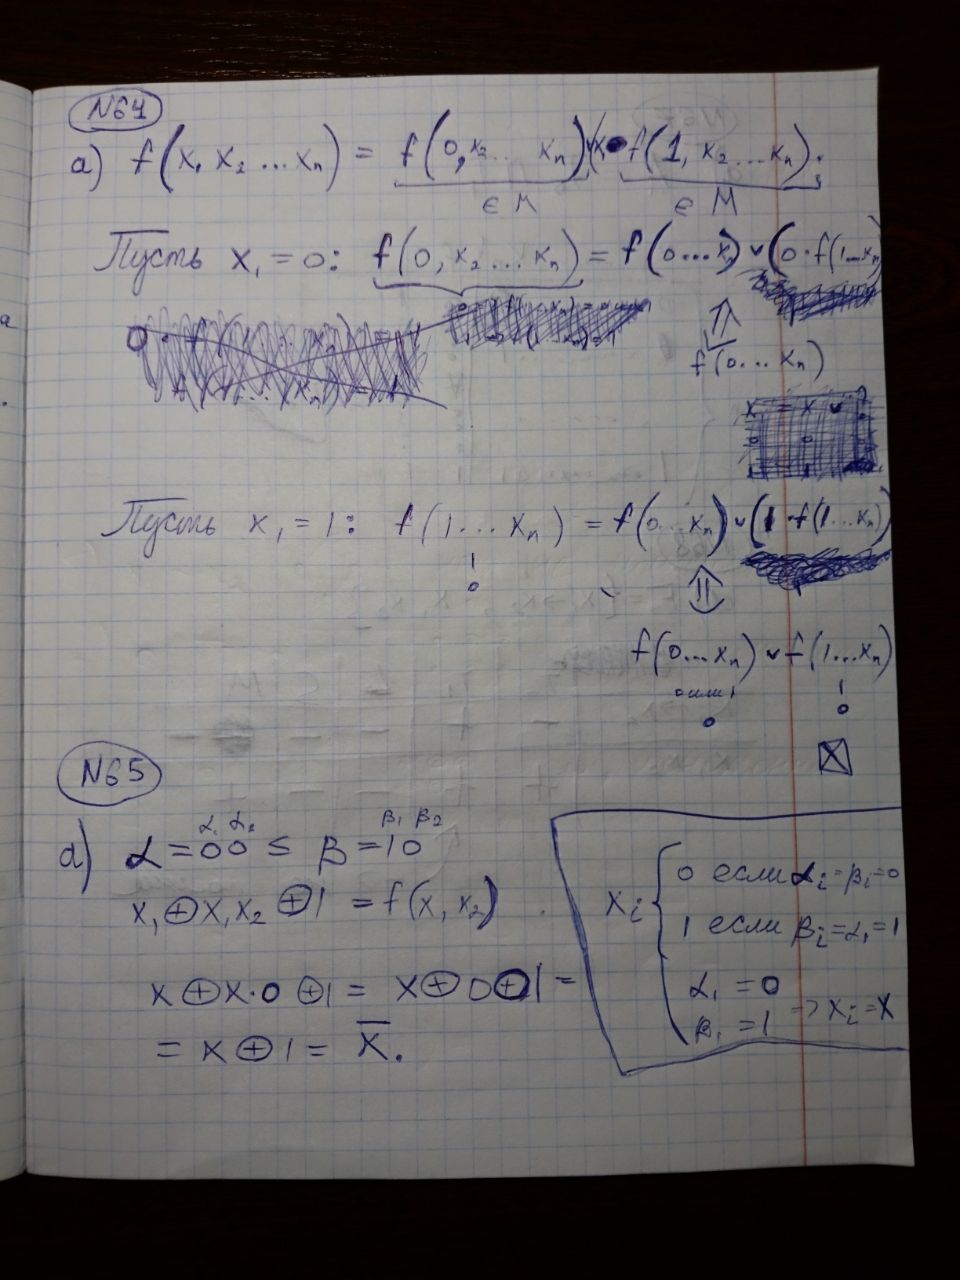 N64
а) f(x₁ x₂ ... xₙ) = f(0, x₂ ... xₙ) ∨ (x₁ · f(1, x₂ ... xₙ).
∈ M ∈ M
Пусть x₁ = 0: f(0, x₂ ... xₙ) = f(0 ... xₙ) ∨ (0 · f(1 ... xₙ)
⇑
f(0 ... xₙ)
Пусть x₁ = 1: f(1 ... xₙ) = f(0 ... xₙ) ∨ (1 · f(1 ... xₙ))
1
0
⇕
f(0 ... xₙ) ∨ f(1 ... xₙ)
0 или 1 1
0 0
N65
α₁ α₂ β₁ β₂
α = 00 ≤ β = 10
x₁ ⊕ x₁ x₂ ⊕ 1 = f(x₁ x₂)
x ⊕ x · 0 ⊕ 1 = x ⊕ 0 ⊕ 1 =
= x ⊕ 1 = x̅.
xᵢ {
0 если αᵢ = βᵢ = 0
1 если βᵢ = α₁ = 1
α₁ = 0
β₁ = 1 => xᵢ = x